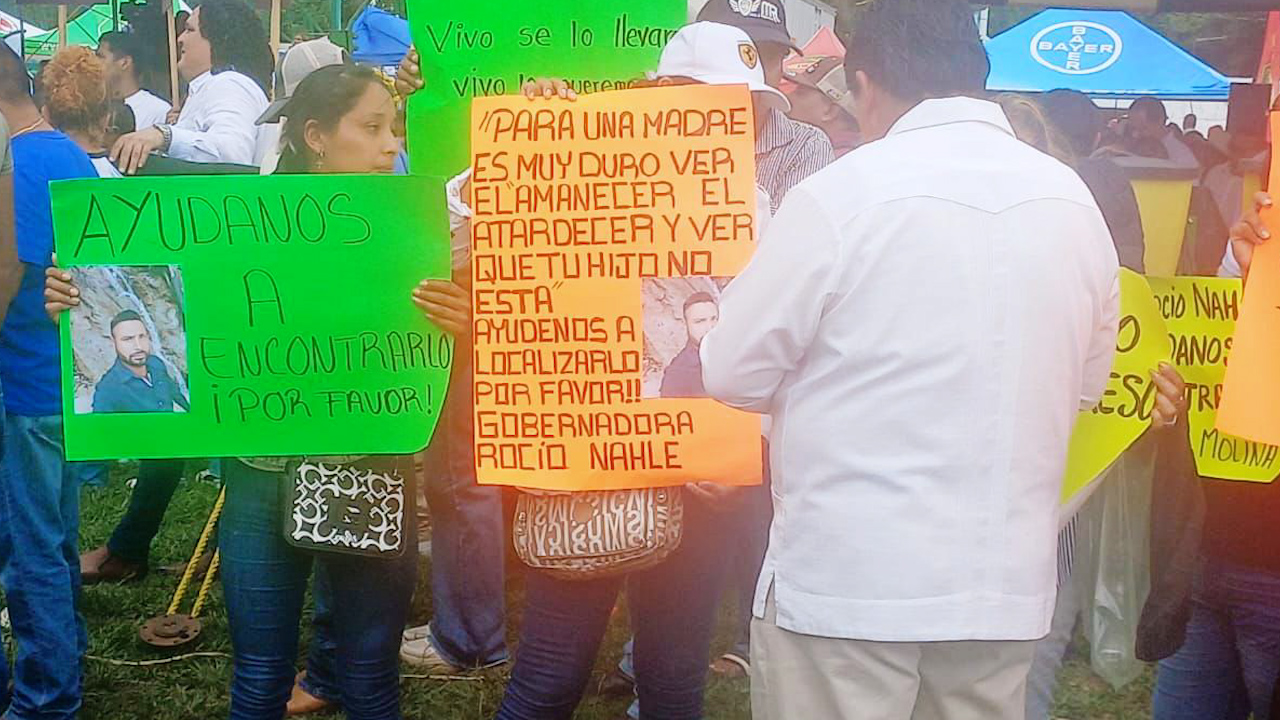 Vivo se lo llevaron
vivo lo queremos
AYUDANOS
A
ENCONTRARLO
¡POR FAVOR!
"PARA UNA MADRE
ES MUY DURO VER
EL"AMANECER EL
ATARDECER Y VER
QUE TU HIJO NO
ESTA"
AYUDENOS A
LOCALIZARLO
POR FAVOR!!
GOBERNADORA
ROCÍO NAHLE
BAYER
BAYER
NAHLE
MOLINA